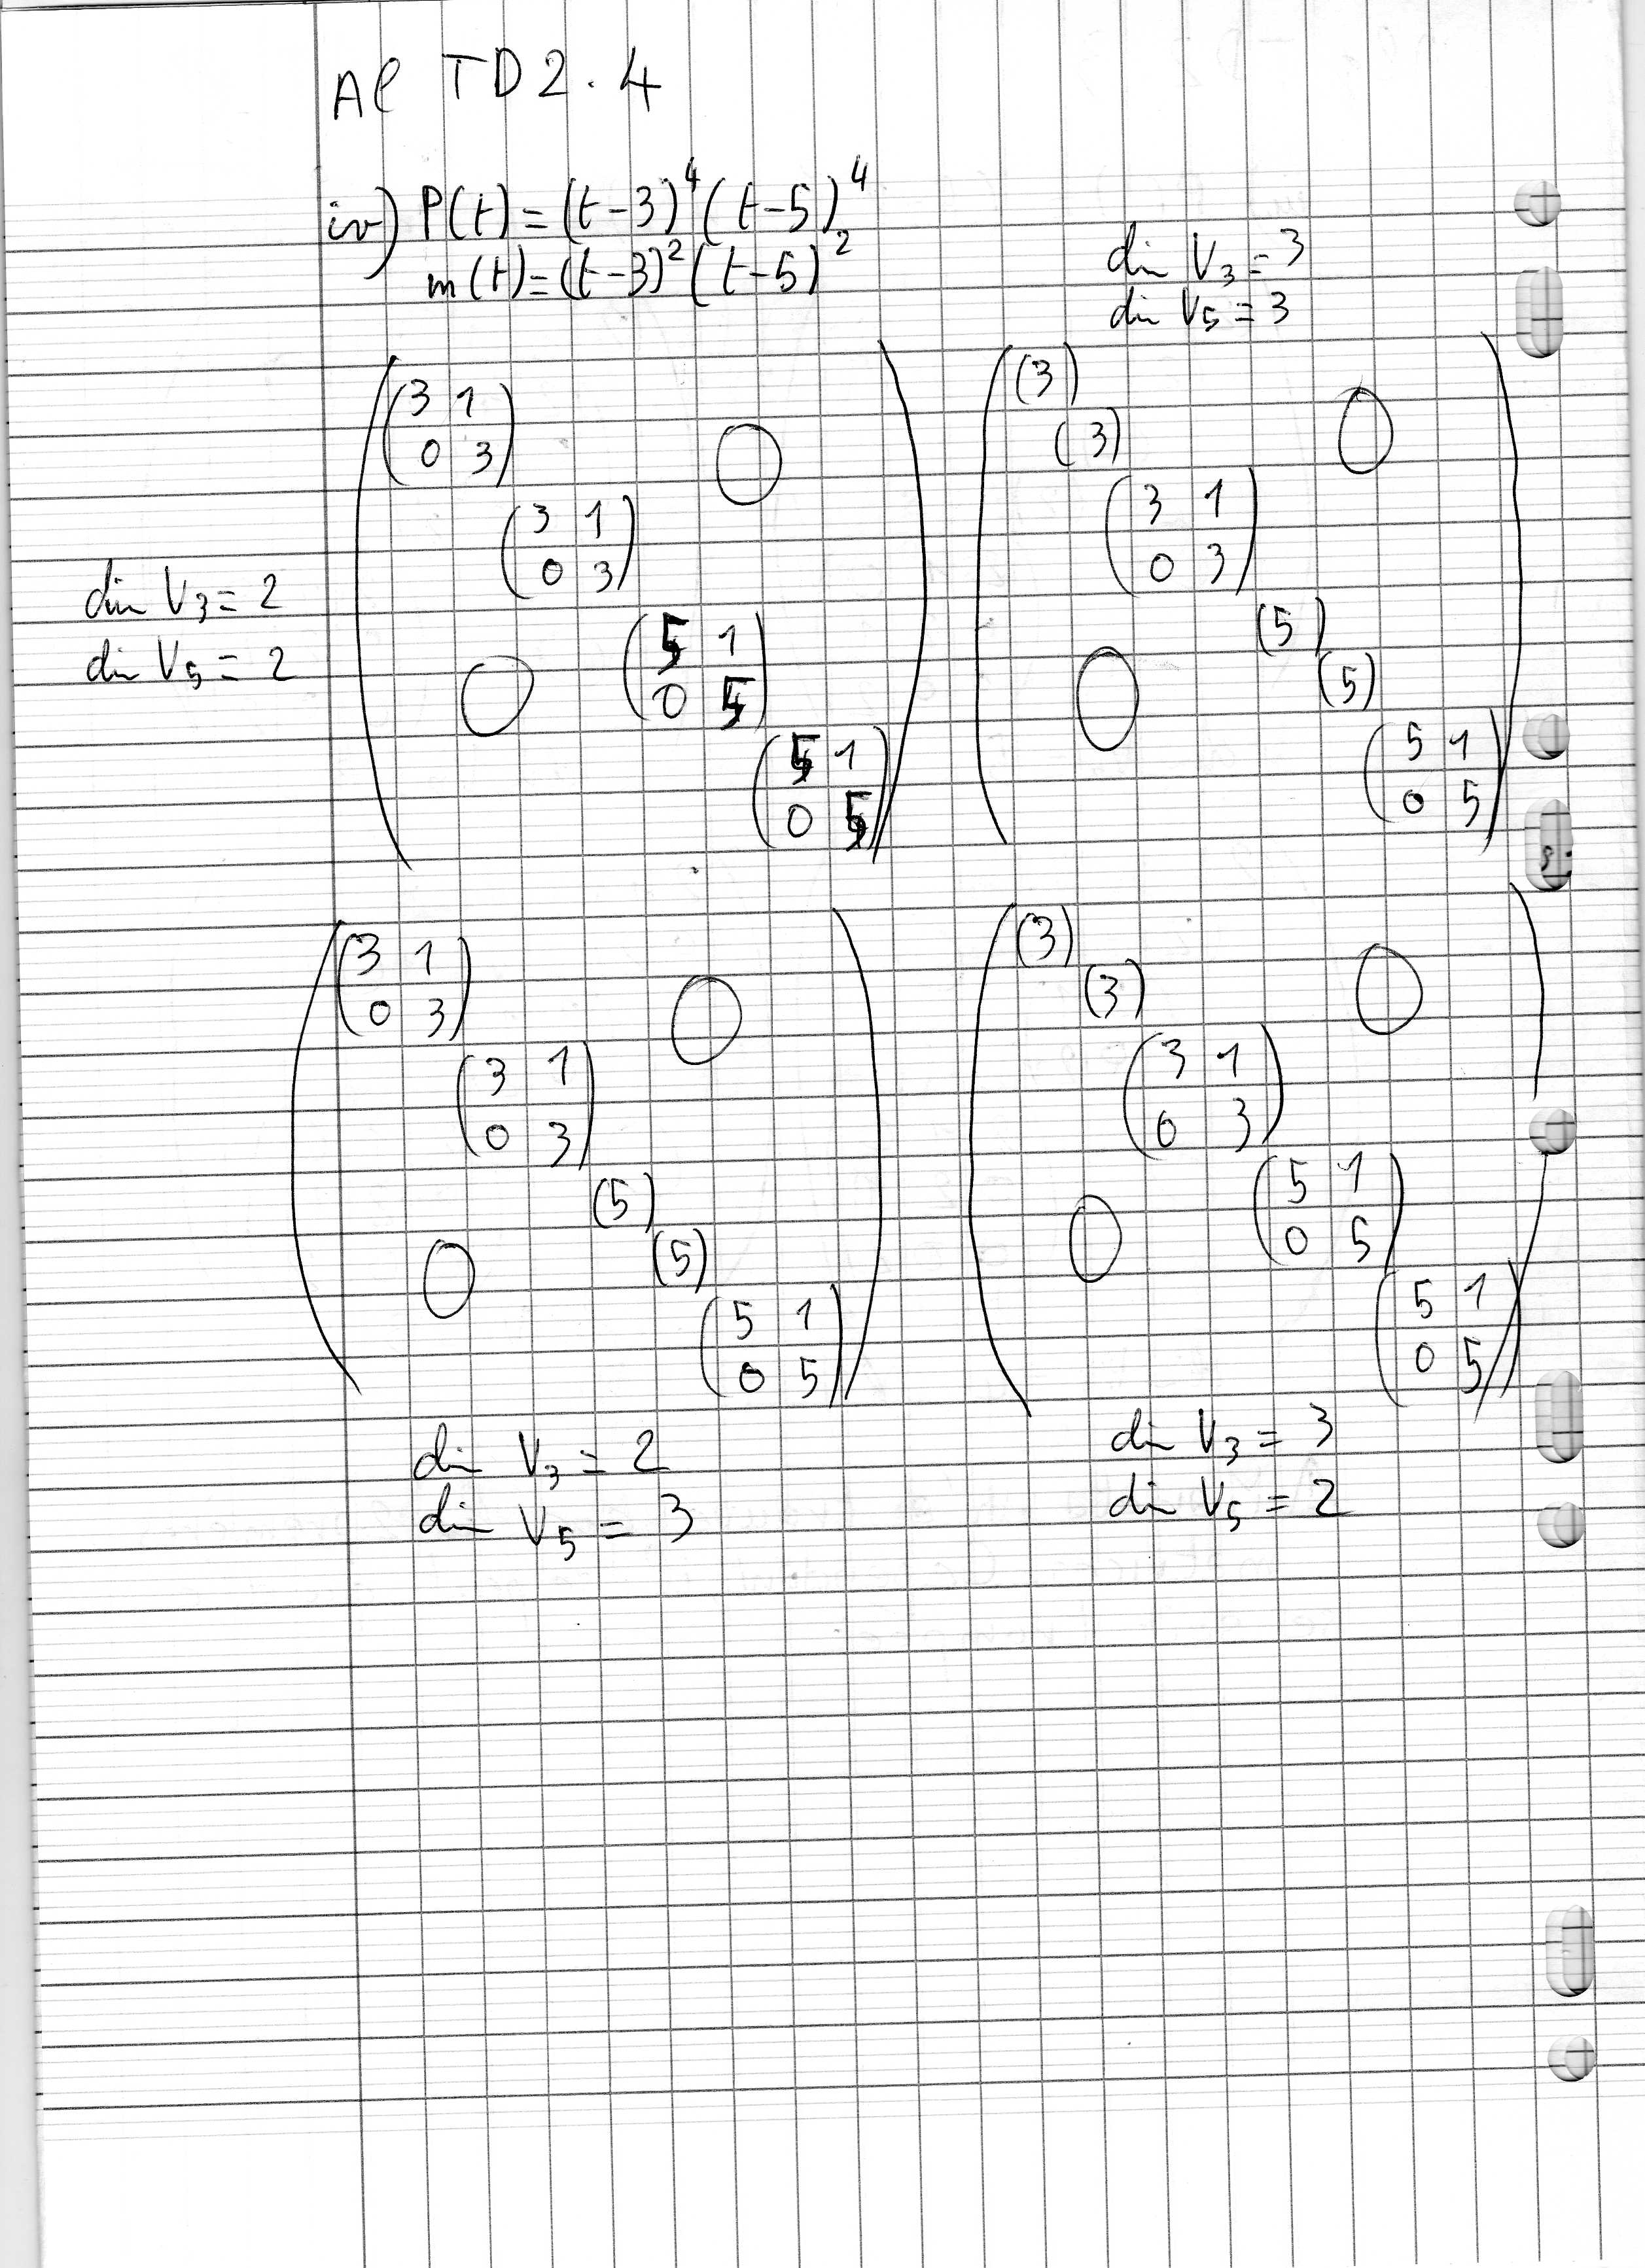 Al TD2.4
iv) P(t) = (t-3)⁴ (t-5)⁴
m(t) = (t-3)² (t-5)²
dim V₃ = 3
dim V₅ = 3
dim V₃ = 2
dim V₅ = 2
3 1
0 3
3 1
0 3
0
0
5 1
0 5
5 1
0 5
(3)
(3)
0
3 1
0 3
(5)
0
(5)
5 1
0 5
3 1
0 3
0
3 1
0 3
(5)
0
(5)
5 1
0 5
dim V₃ = 2
dim V₅ = 3
(3)
(3)
0
3 1
0 3
0
5 1
0 5
5 1
0 5
dim V₃ = 3
dim V₅ = 2